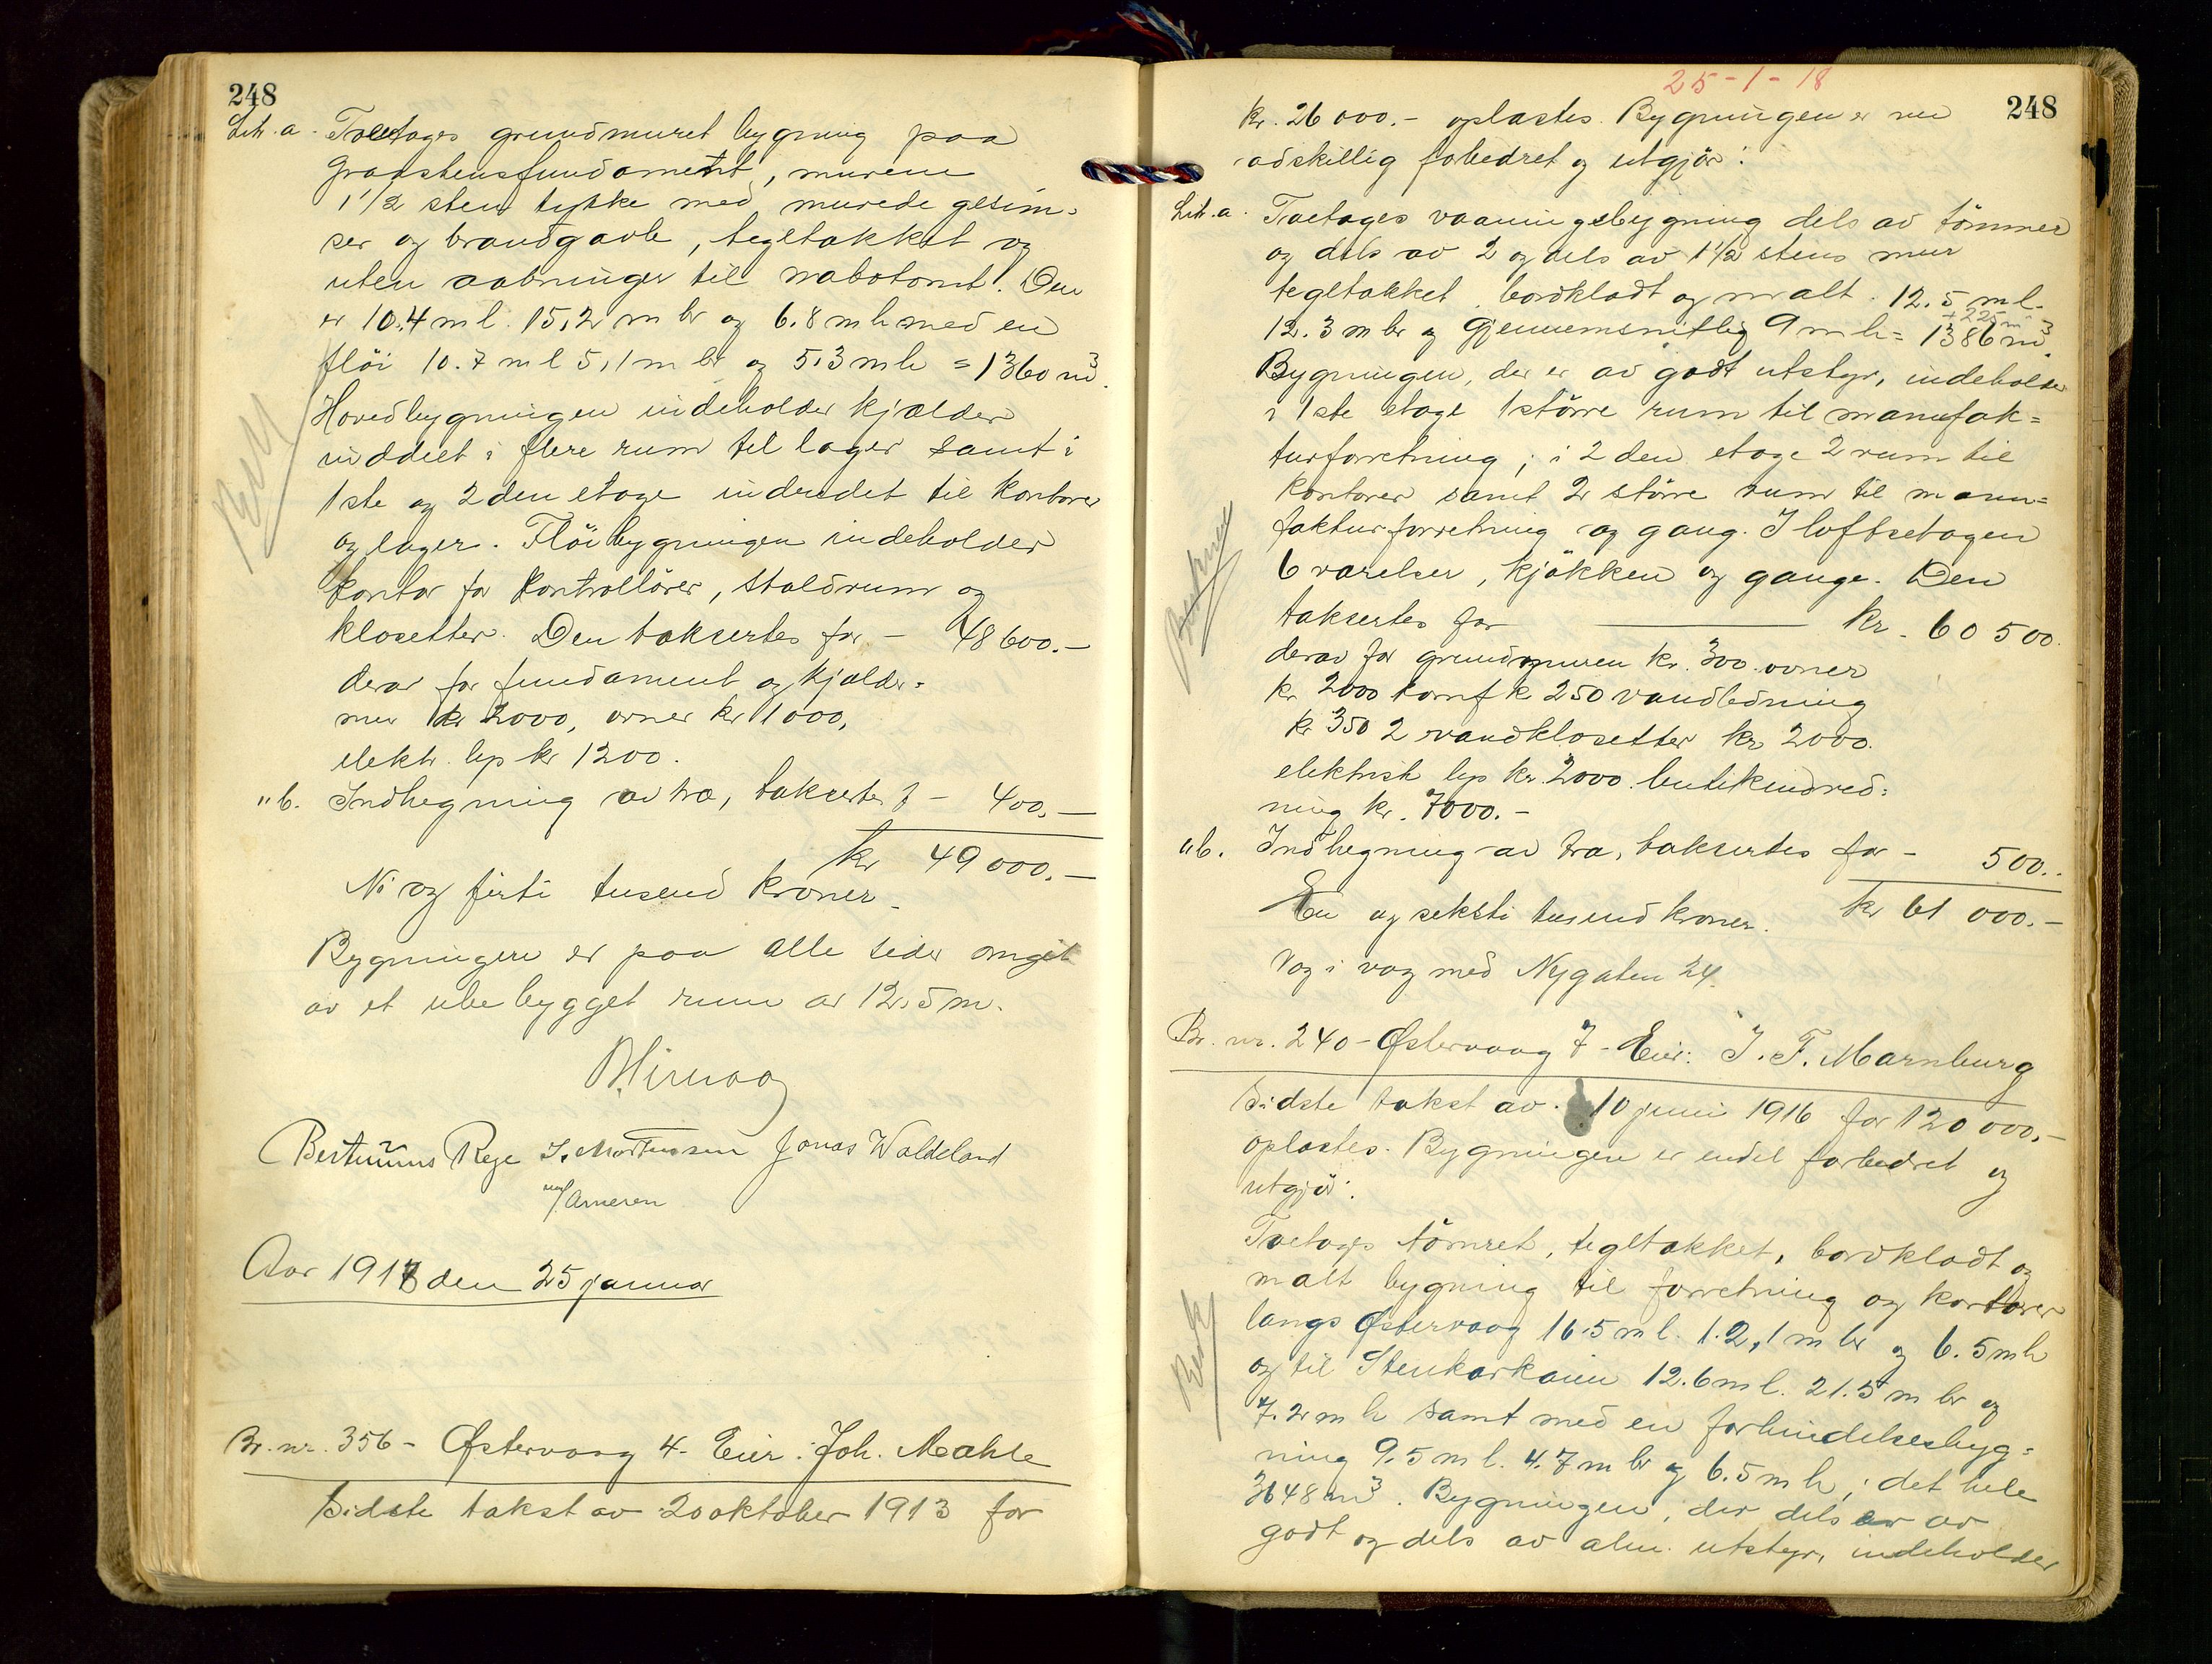 248
Litr. a. Toetages grundmuret bygning paa
graastensfundament, murene
1 1/2 sten tykke med murede gesim-
ser og brandgavle, tegltakket og
uten aabninger til nabotomt. Den
er 10.4 m l. 15,2 m br og 6.8 m h med en
fløi 10.7 m l 5,1 m br og 5,3 m h = 1360 m³.
Hovedbygningen indeholder kjælder
inddelt i flere rum til lager samt i
1ste og 2den etage indredet til kontorer
og lager. Fløibygningen indeholder
kontor for kontrollører, staldrum og
klosetter. Den taksertes for - 48 600.-
derav for fundament og kjælder-
mur kr 2000, ovner kr 1000,
elektr. lys kr 1200.
" b. Indhegning av træ, taksertes f - 400.-
kr 49 000.-
Ni og firti tusend kroner.
Bygningen er paa alle sider omgit
av et ubebygget rum av 12.5 m.
Bertinius Rege J. Mortensen Jonas Waldeland
Aar 1918 den 25 januar
Br. nr. 356 - Østervaag 4. Eier: Joh. Mæhle
Sidste takst av 20 oktober 1913 for
25-1-18
248
kr. 26 000.- oplæstes. Bygningen er nu
adskillig forbedret og utgjør:
Litr. a. Toetages vaaningsbygning dels av tømmer
og dels av 2 og dels av 1 1/2 stens mur
tegltakket, bordklædt og malt. 12.5 m l.
+225 m³
12.3 m br og gjennemsnitlig 9 m h = 1386 m³.
Bygningen, der er av godt utstyr, indeholder
i 1ste etage 1 større rum til manufak-
turforretning; i 2den etage 2 rum til
kontorer samt 2 større rum til manu-
fakturforretning og gang. I loftsetagen
6 værelser, kjøkken og gange. Den
taksertes for kr. 60 500.
derav for grundmuren kr. 300. ovner
kr 2000 komf kr 250 vandledning
kr 350 2 vandklosetter kr 2000.
elektrisk lys kr. 2000. butikindred-
ning kr. 7000.-
" b. Indhegning av træ, taksertes for - 500..
kr 61 000.-
En og seksti tusend kroner.
Væg i væg med Nygaten 24.
Br. nr. 240 - Østervaag 7 - Eier: J. F. Marnburg
Sidste takst av 10 juni 1916 for 120 000,-
oplæstes. Bygningen er endel forbedret og
utgjør:
Toetages tømret, tegltakket, bordklædt og
malt bygning til forretning og kontorer
langs Østervaag 16.5 m l. 12,1 m br og 6.5 m h
og til Stenkarkaien 12.6 m l. 21.5 m br og
7.2 m h samt med en forbindelsesbyg-
ning 9.5 m l. 4.7 m br og 6.5 m h; det hele
3648 m³. Bygningen, der dels er av
godt og dels av alm. utstyr, indeholder